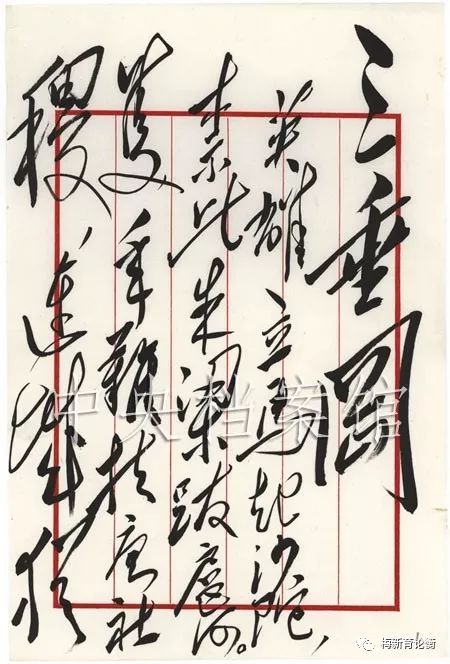 三垂岡
英雄立馬起沙陀，
奈此朱梁跋扈何。
隻手難扶唐社
稷，連城猶
中央档案馆
梅新育论衡